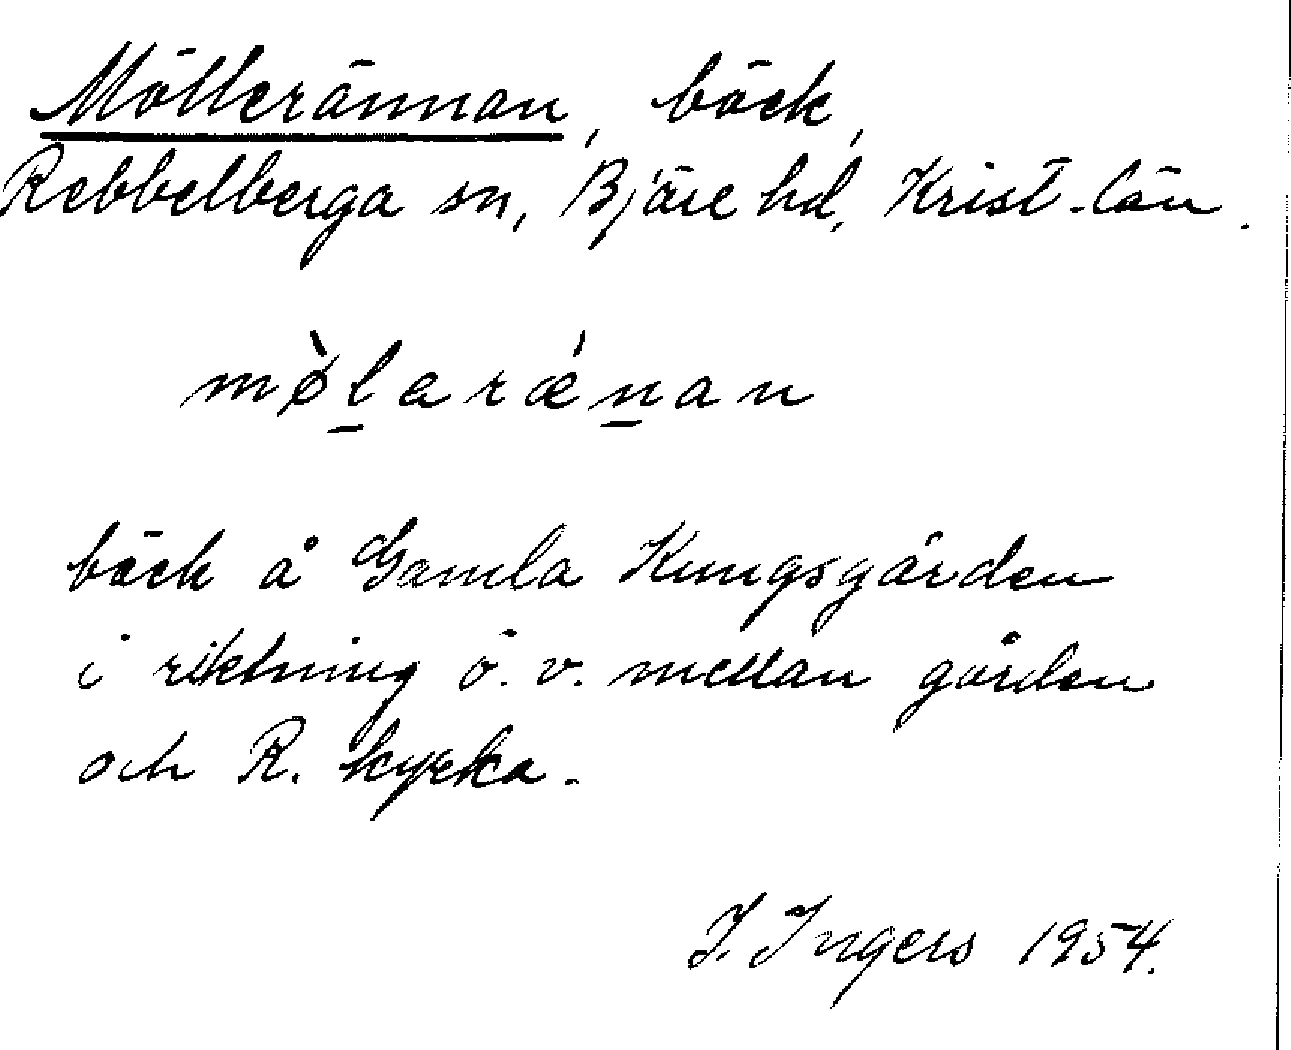 Möllerännan, bäck,
Rebbelberga sn, Bjäre hd, Krist. län.
mø̀l̲arǽn̲an
bäck å Gamla Kungsgården
i riktning ö. v. mellan gården
och R. kyrka.
I. Ingers 1954.